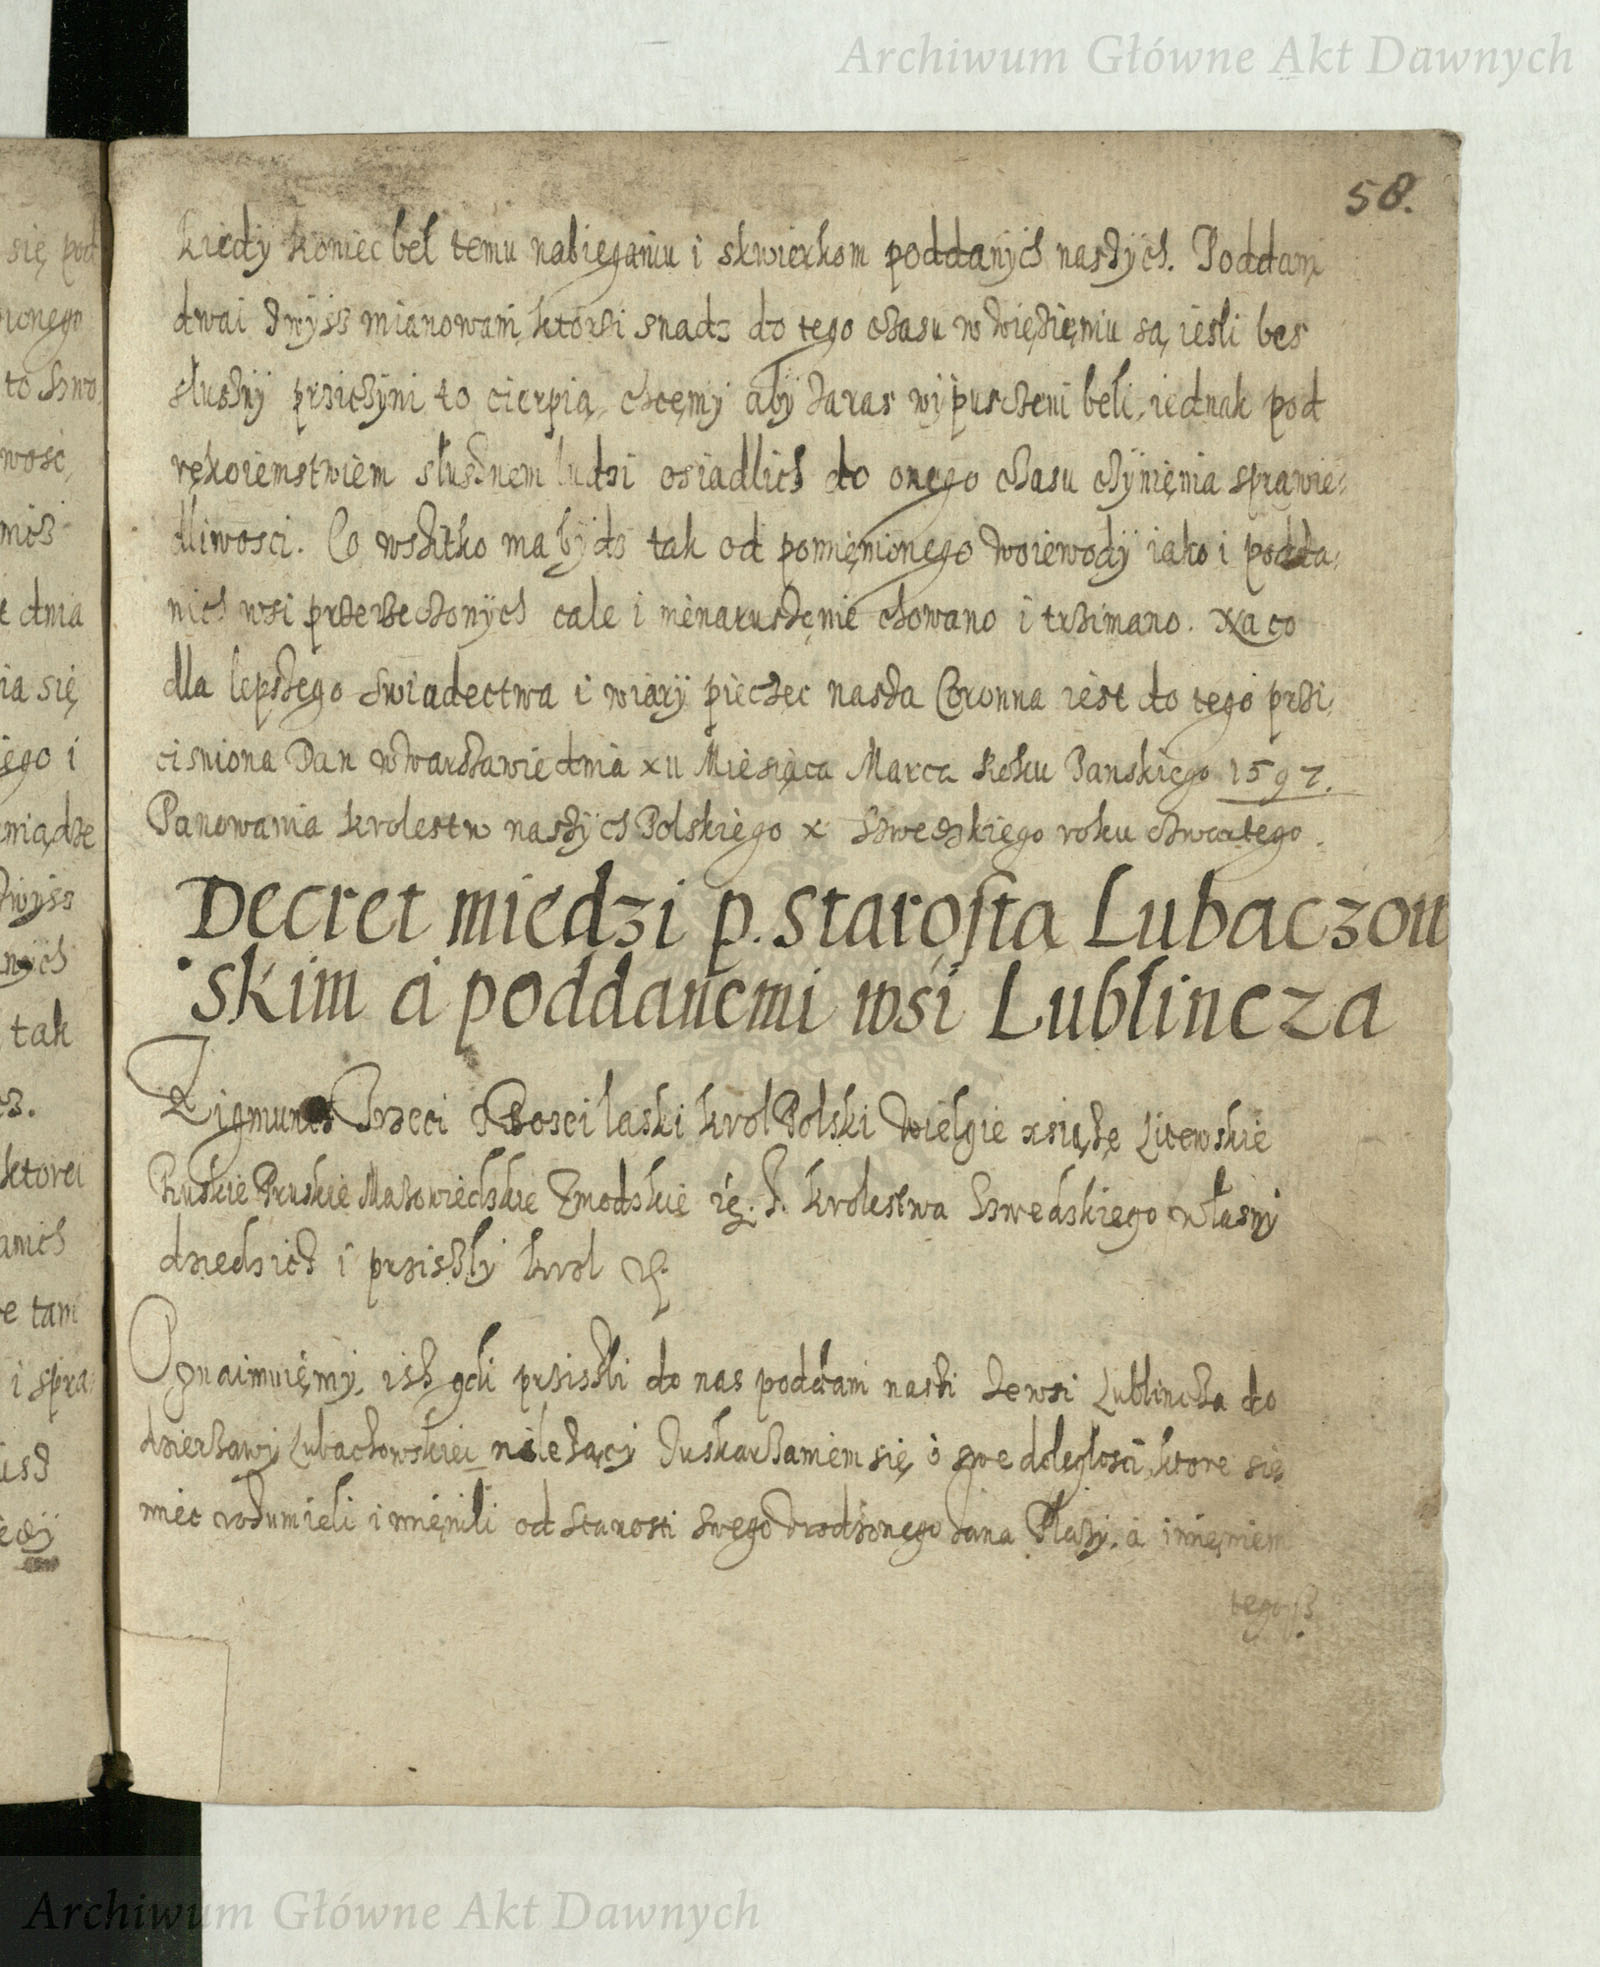 Archiwum Główne Akt Dawnych
58.
kiedy koniec beł temu nabieganiu i skwierkom poddanych naszych. Poddani
dwai zwyss mianowani, ktorsi snadz do tego czasu w więzięniu są, iesli bes
słuszny przicżyni to cierpią, chcęmy aby zaras wypusczeni beli, iednak pod
rękoiemstwiem słusznem ludzi osiadlich do onego cżasu cżynięnia sprawie=
dliwosci. Co wszitko ma bydz tak od pomięnionego woiewody iako i podda,
nich wsi przerzeczonych cale i nienaruszęnie chowano i trzimano. Na co
dla lepszego swiadectwa i wiary pieczec nasza Coronna iest do tego przi,
cisniona Dan w Warszawie dnia XII Miesiąca Marca Roku Panskiego 1597.
Panowania krolestw naszych Polskiego x Szwedzkiego roku czwartego.
Decret miedzi p. Starostą Lubaczow
skim a poddanemi wsi Lublincza
Zigmunt Trzeci z Bozei laski krol Polski Wielgie xsiążę Litewskie
Ruskie Pruskie Mazowiedzkie Zmodzkie krolestwa Szwedskiego własny
dziedzicz i prziszly krol
Oznaimuięmy, isz gdi prziszli do nas poddani naszi ze wsi Lublincza do
dzierzawy Lubaczowskiei nalezący z uskarzaniem się o swe dolęglosci, ktore się
miec rozumieli i mięnili od starosti swego urodzonego Jana Płazy, a imięniem
tegosz
się pod
ionego
to szwo
wosc,
dnia
ia się
iego i
niądze
zwyss
nych
tak
ktorei
anich
e tam
i spra=
Archiwum Główne Akt Dawnych